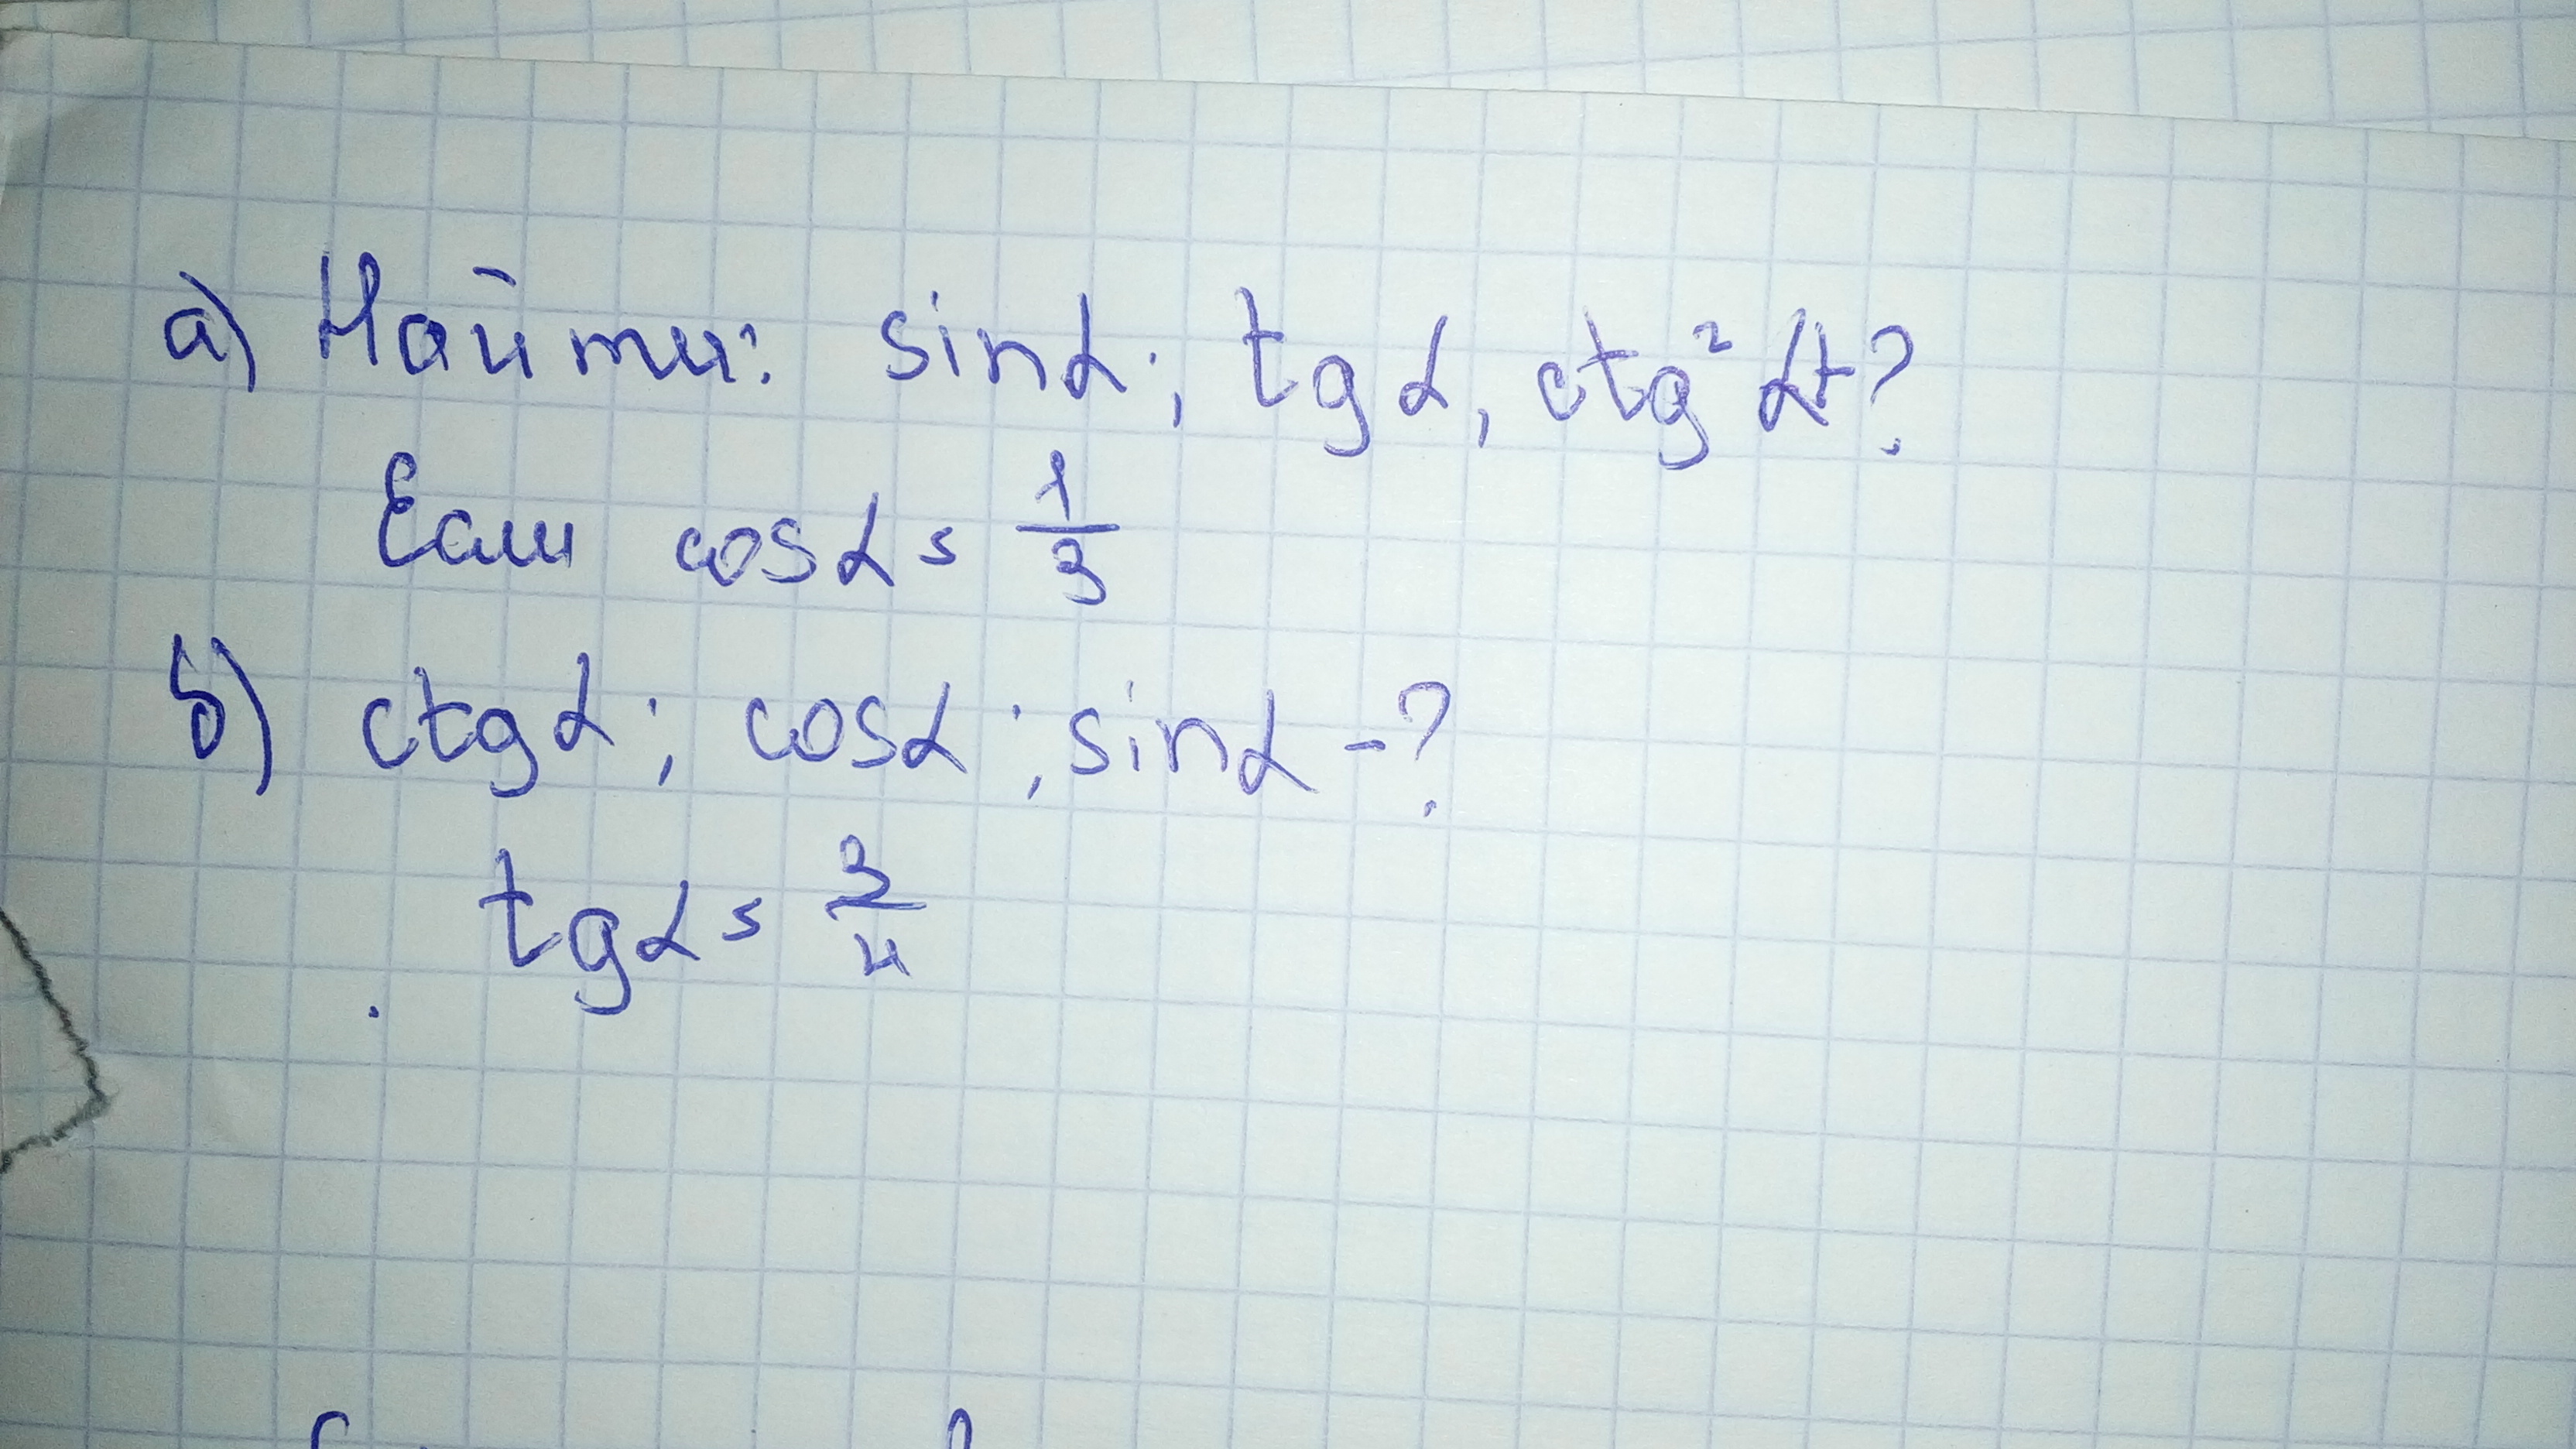 а) Найти: sinα; tgα, ctg²α-?
Если cosα = 1/3
б) ctgα; cosα; sinα-?
tgα = 3/4